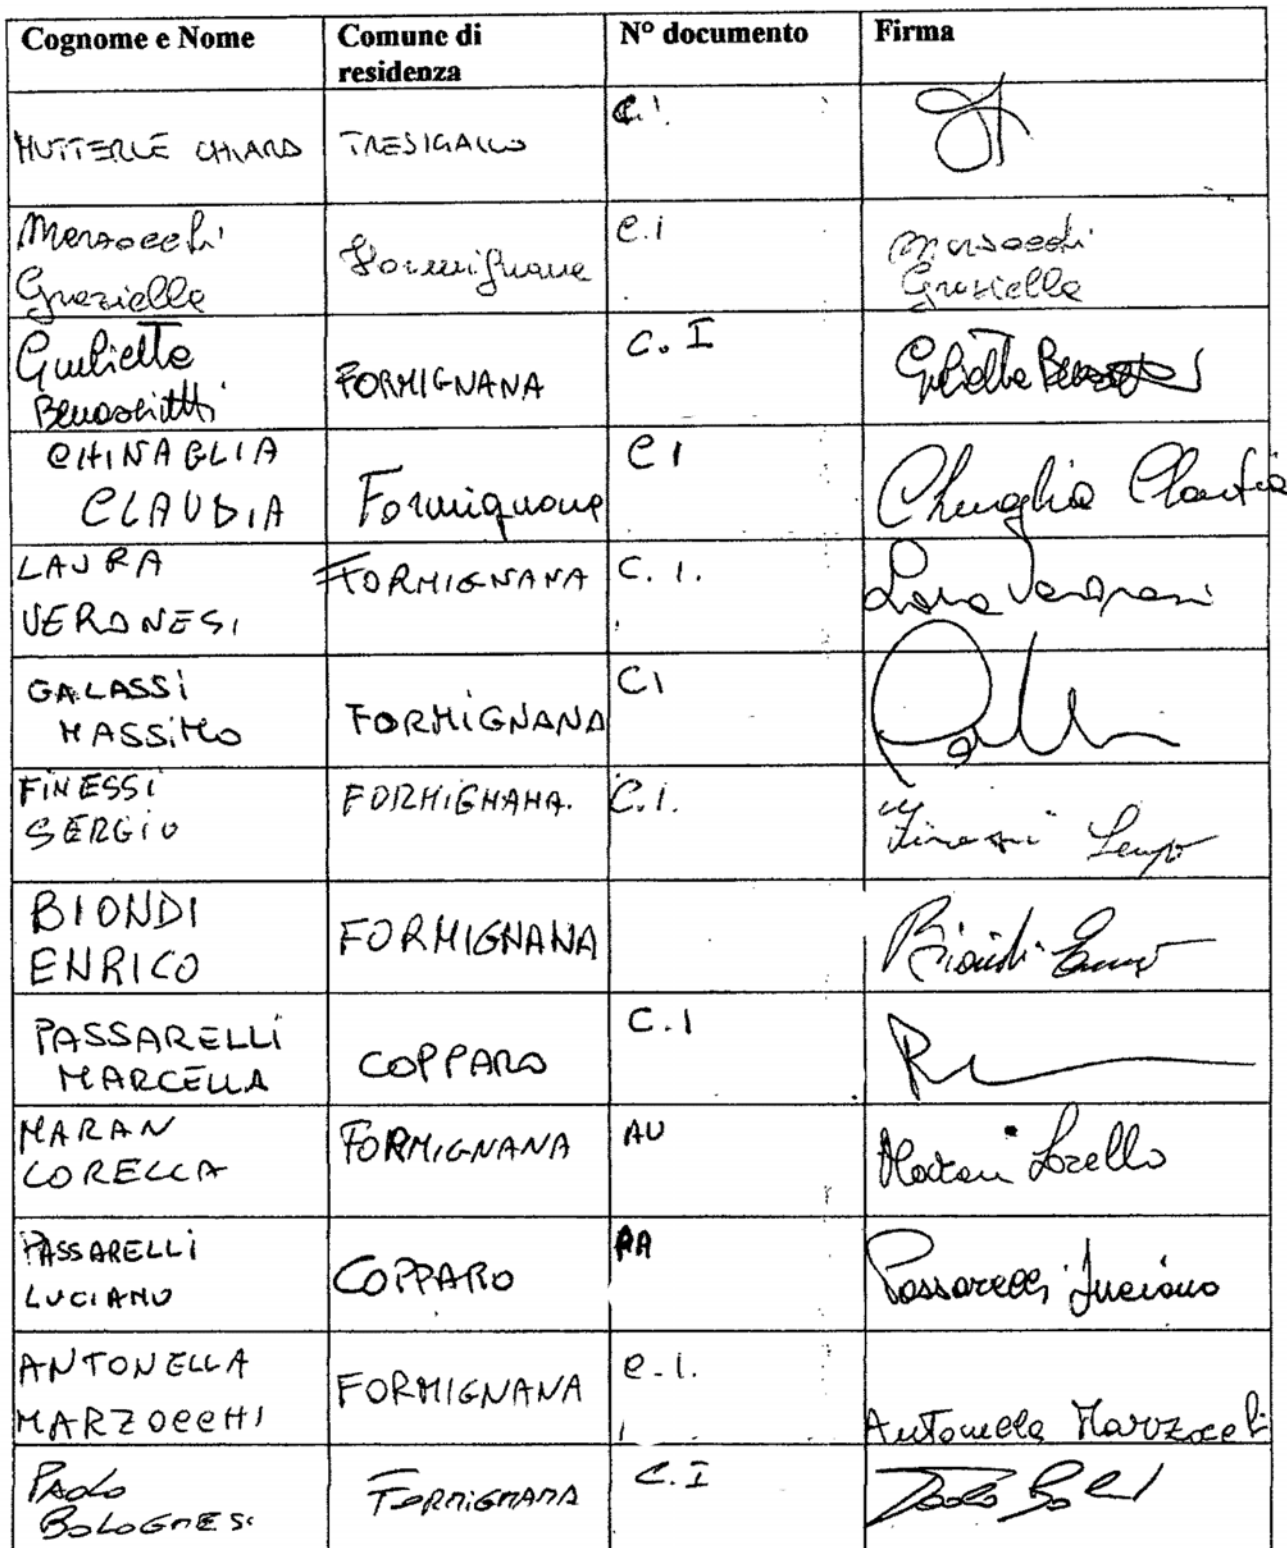 Cognome e Nome
Comune di
residenza
N° documento
Firma
MUTTERLE CHIARA
TRESIGALLO
C.I.
Marzocchi
Graziella
Formignana
C.I
Marzocchi
Graziella
Giulietta
Benassiutti
FORMIGNANA
C. I
Giulietta
CHINAGLIA
CLAUDIA
Formignana
CI
Chinaglia Claudia
LAURA
VERONESI
FORMIGNANA
C. I.
Laura Veronesi
GALASSI
MASSIMO
FORMIGNANA
CI
FINESSI
SERGIO
FORMIGNANA.
C.I.
Finessi Sergio
BIONDI
ENRICO
FORMIGNANA
Biondi Enrico
PASSARELLI
MARCELLA
COPPARO
C.I
MARAN
LORELLA
FORMIGNANA
AU
Maran Lorella
PASSARELLI
LUCIANO
COPPARO
AA
Passarelli Luciano
ANTONELLA
MARZOCCHI
FORMIGNANA
C.I.
Antonella Marzocchi
PAOLO
BOLOGNESI
FORMIGNANA
C.I
Paolo